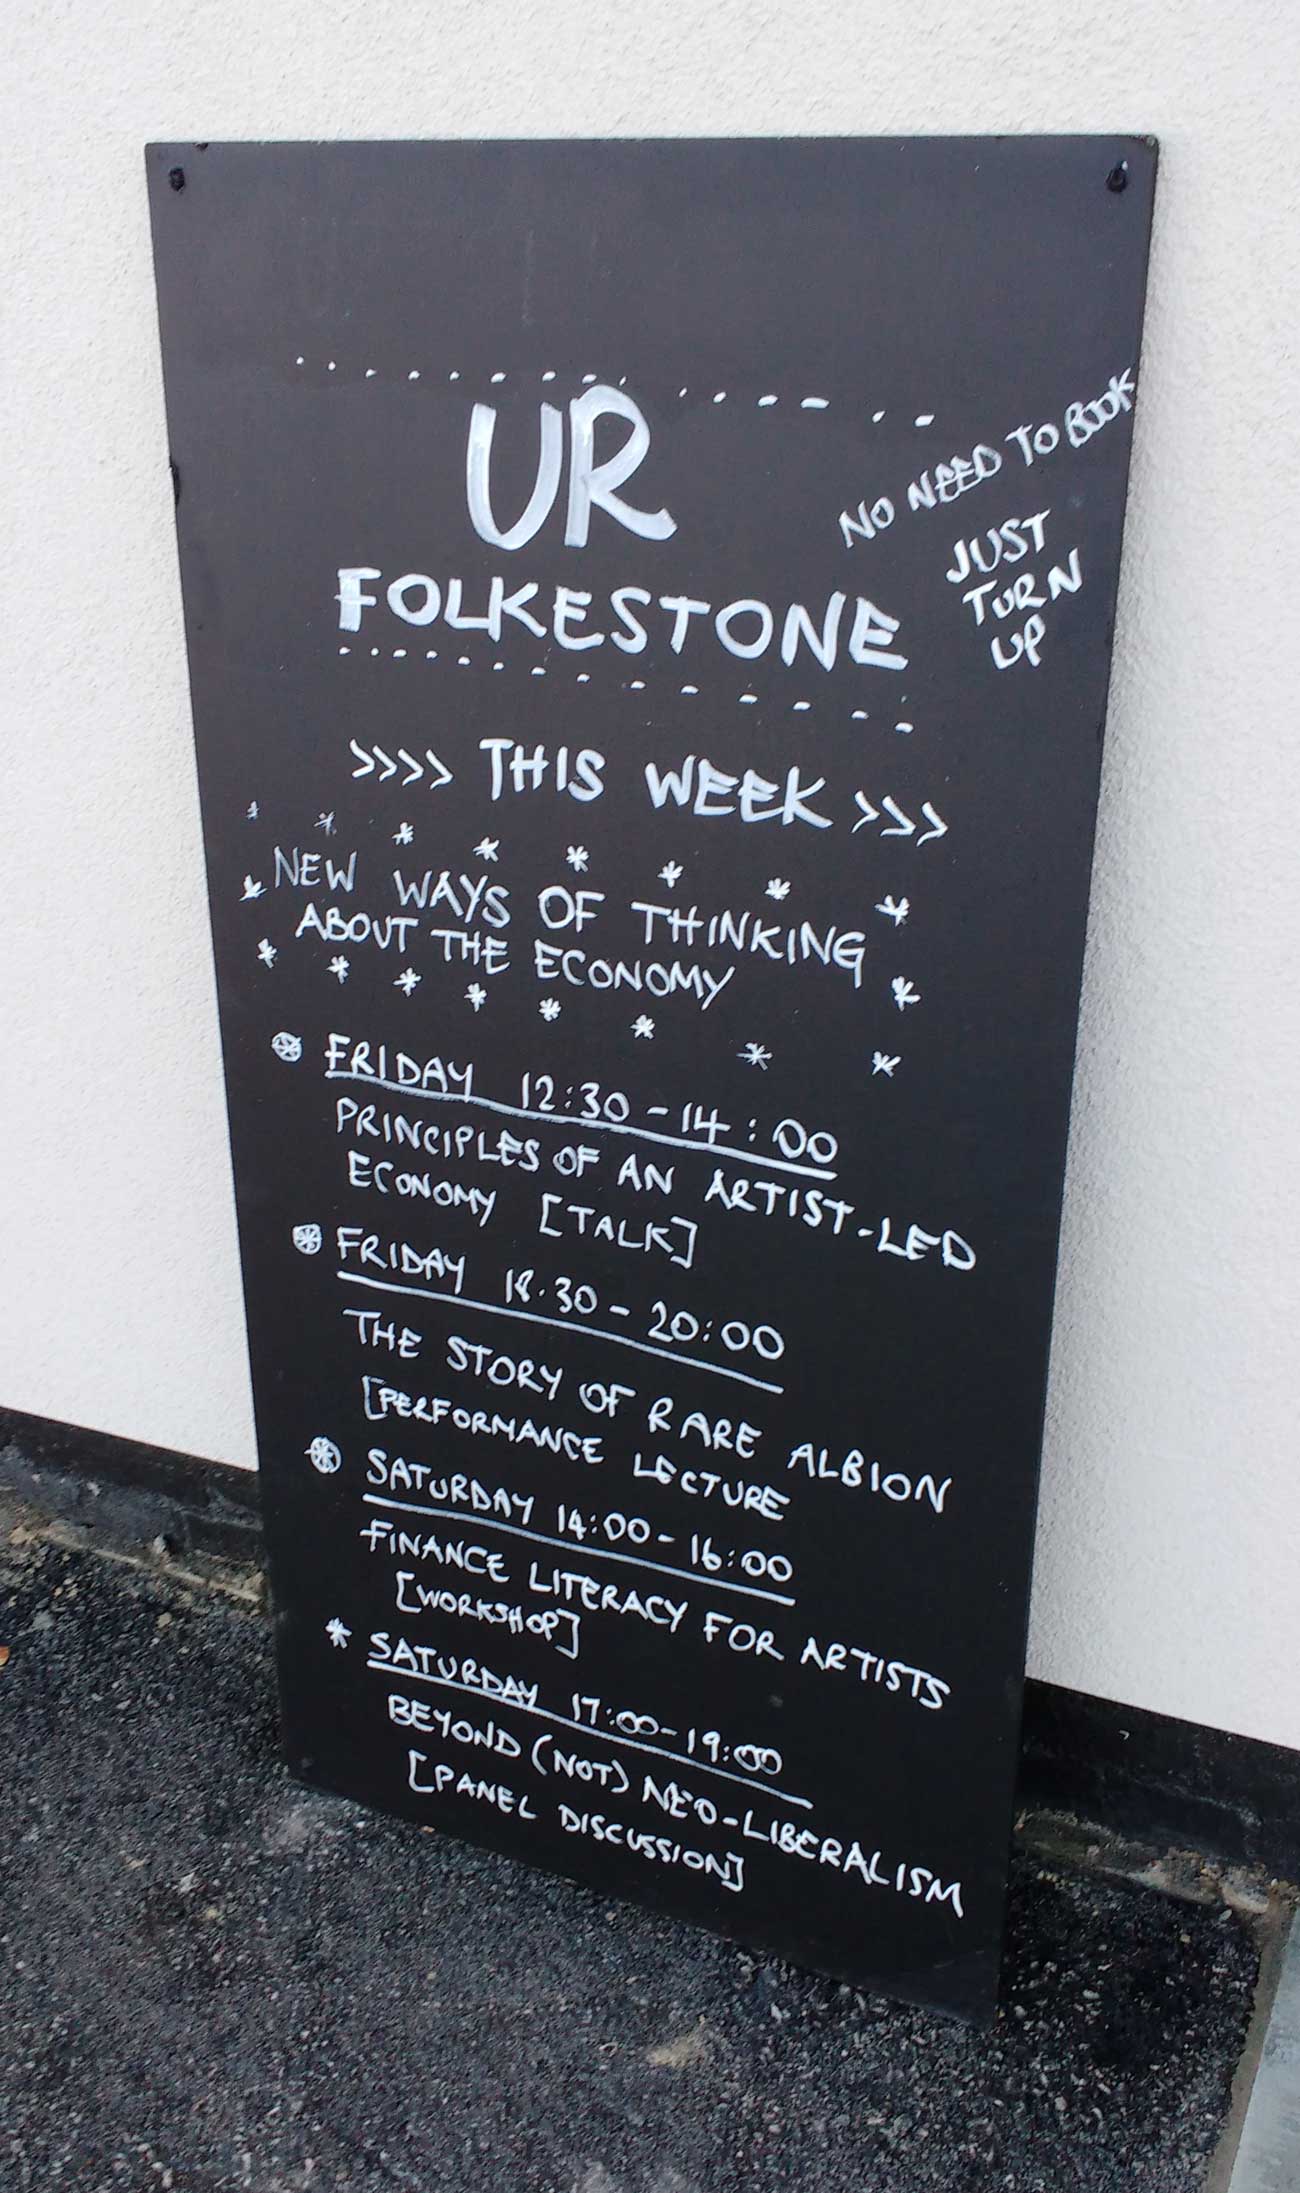 UR
FOLKESTONE
NO NEED TO BOOK
JUST
TURN
UP
>>>> THIS WEEK >>>
NEW WAYS OF THINKING
ABOUT THE ECONOMY
FRIDAY 12:30 - 14:00
PRINCIPLES OF AN ARTIST-LED
ECONOMY [TALK]
FRIDAY 18.30 - 20:00
THE STORY OF RARE ALBION
[PERFORMANCE LECTURE
SATURDAY 14:00 - 16:00
FINANCE LITERACY FOR ARTISTS
[WORKSHOP]
* SATURDAY 17:00 - 19:00
BEYOND (NOT) NEO-LIBERALISM
[PANEL DISCUSSION]